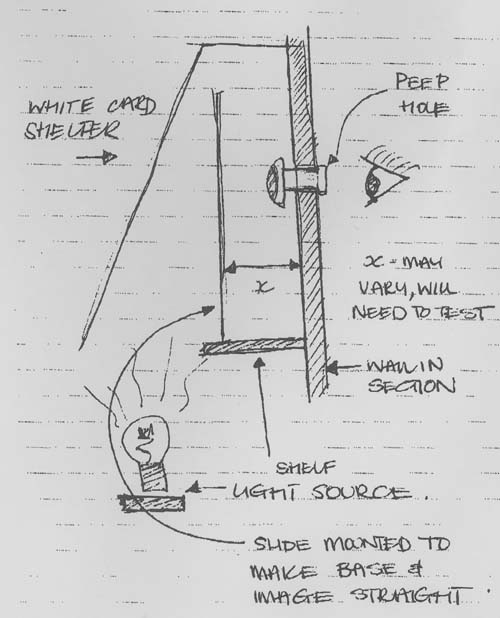 PEEP
HOLE
WHITE CARD
SHELTER
x
x - MAY
VARY, WILL
NEED TO TEST
WALL IN
SECTION
SHELF
LIGHT SOURCE.
SLIDE MOUNTED TO
MAKE BASE &
IMAGE STRAIGHT.